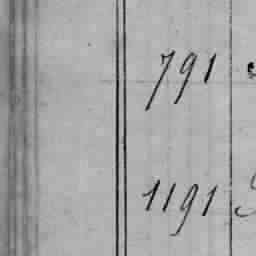 791
1191